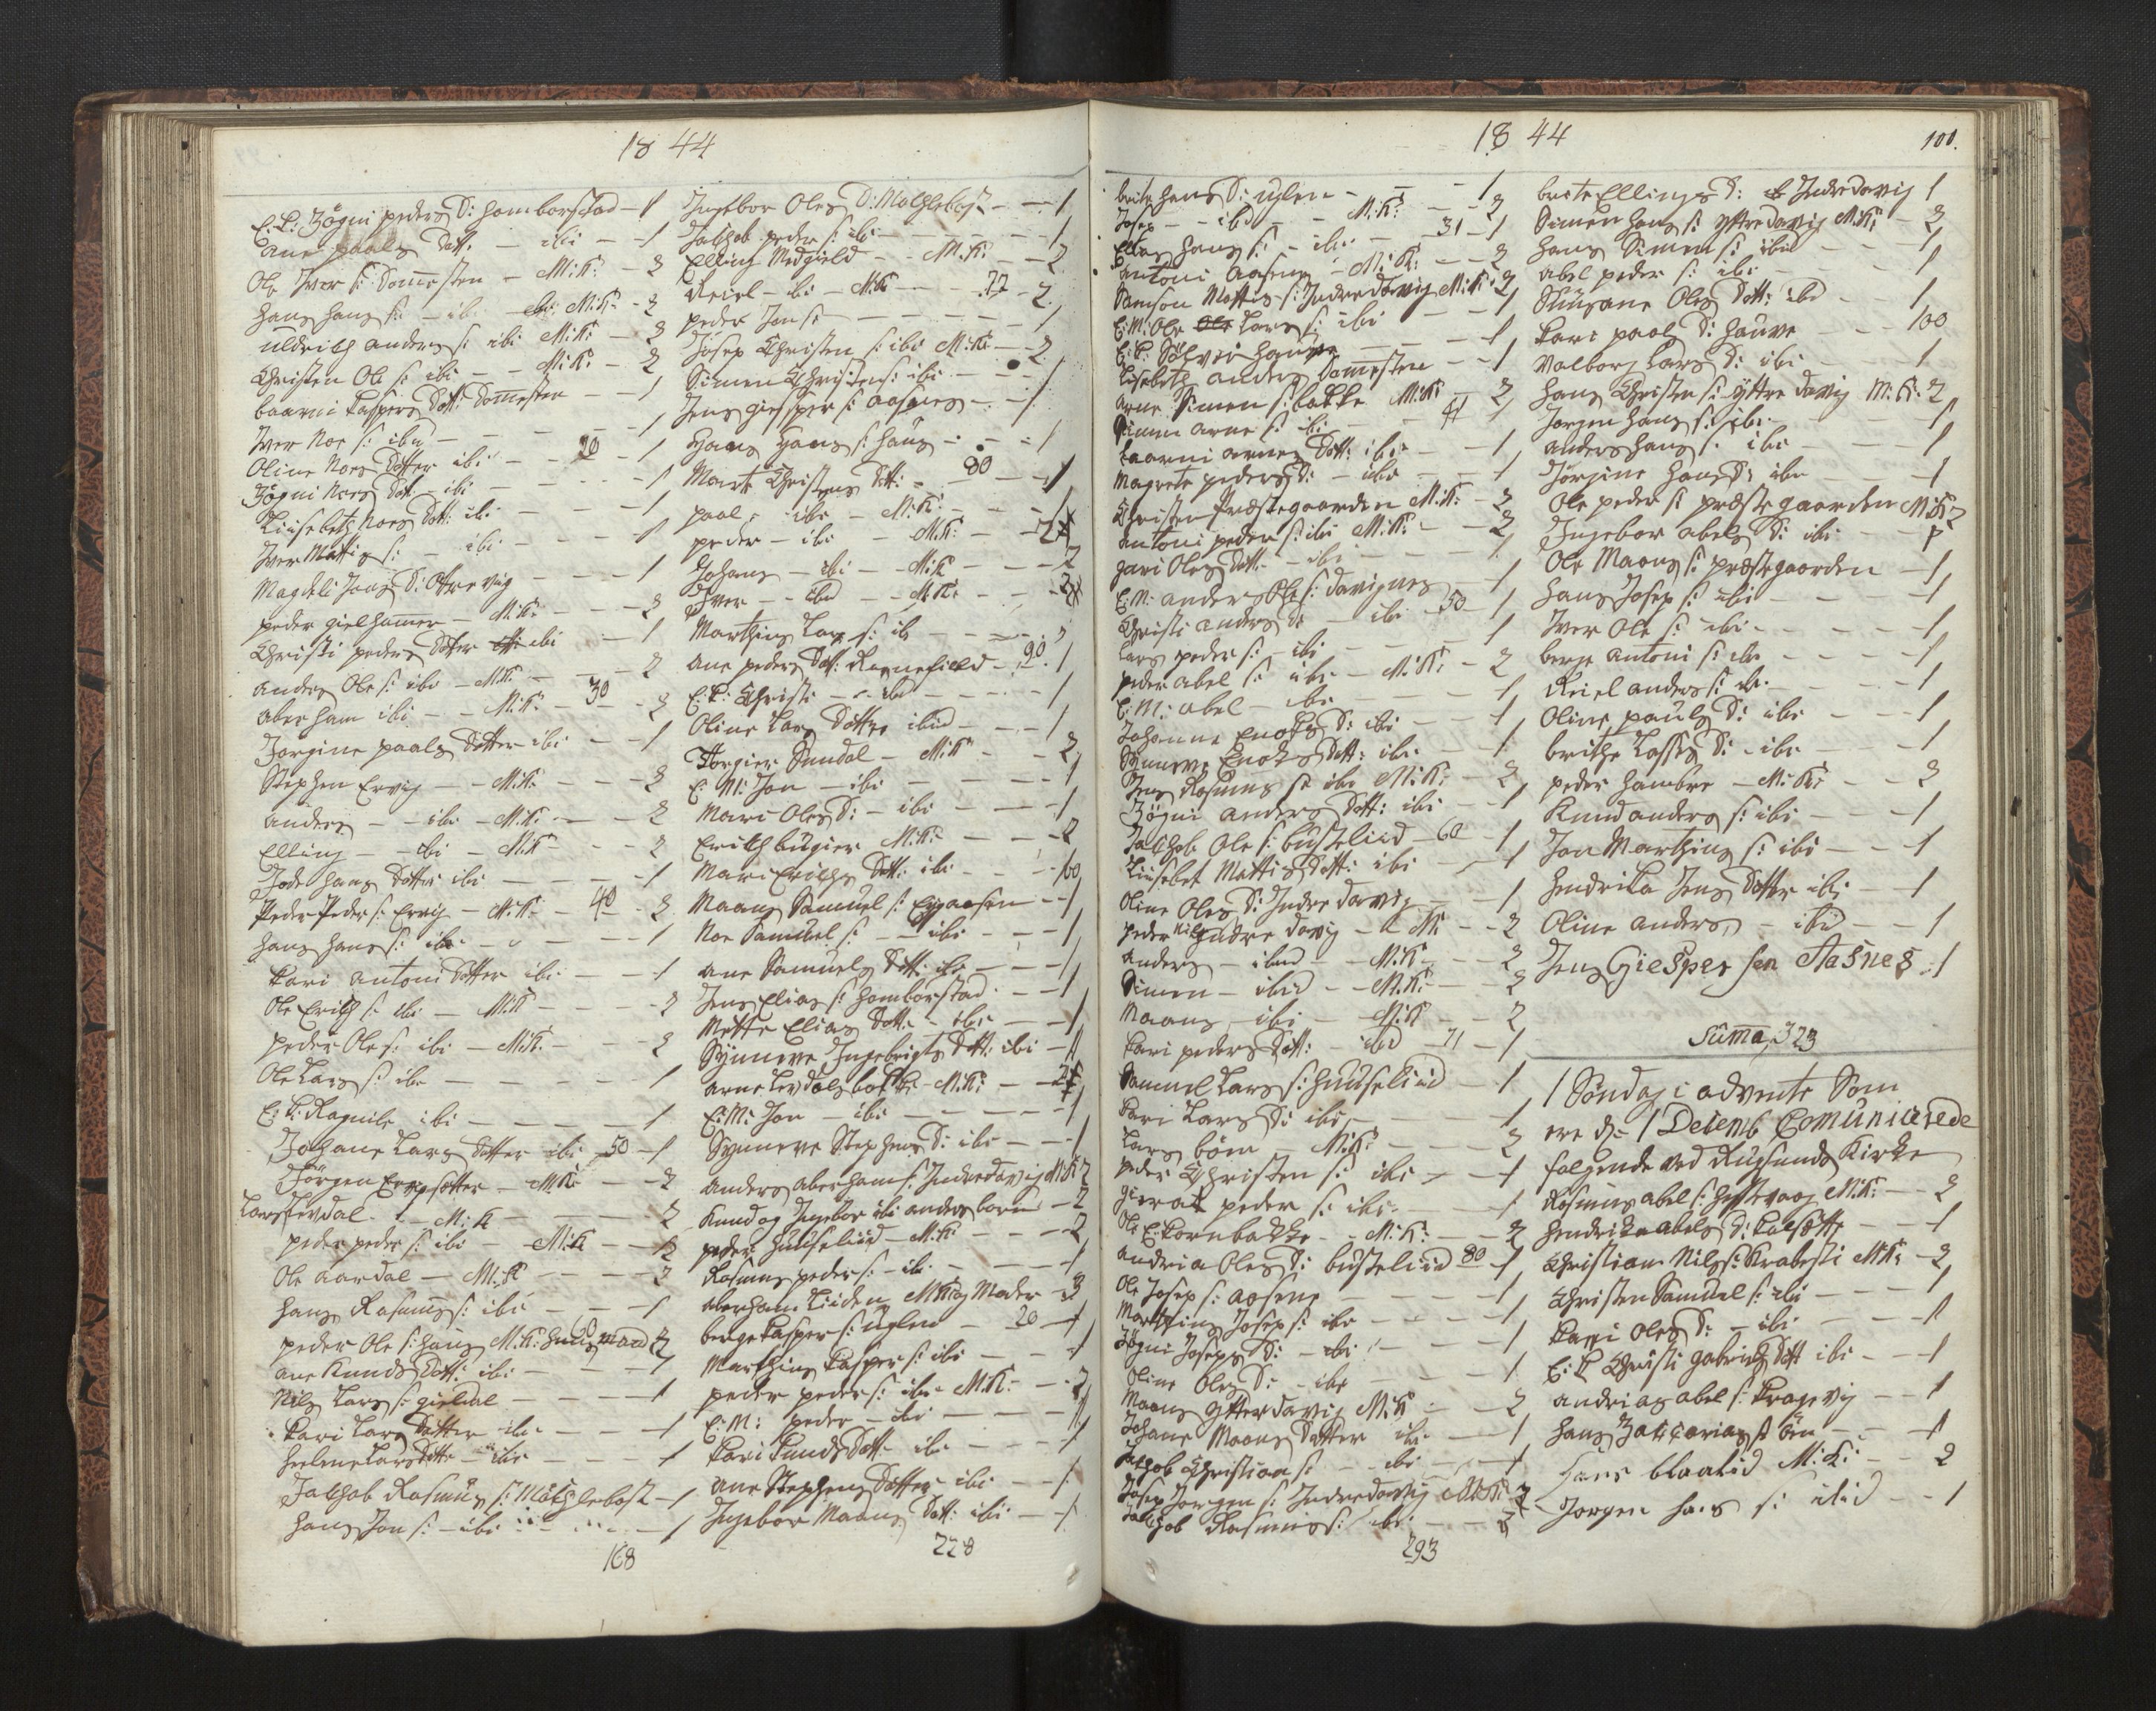 1844
E: K: Zögni peders D: Hamborstad – 1
ane paals Dott: – ibi – – 1
Ole Iver s: Domesten – M:K: – 2
Hans Hans s: – ibi M:K: – 2
Uldrich anders s: ibi M:K: – 2
Christen Ole s: ibi – – M:K: – 2
baarni Caspers Dott: Domesten – – 1
Iver Noe s: ibid – – – – – 1
Oline Noes Dotter ibi – – 20 – 1
Zögni Noes Dott – ibi – – – 1
Liisebeth Noes Dott: ibi – – – 1
Iver Mattis s: – ibi – – – 1
Magdeli Jons D: Otrevig – – – 1
peder gielhamer – M:K: – – – 2
Christi peders Dotter ibi – 1
anders Ole s: ibi – M:K: – – – 2
aberham ibi – – M:K: – 30 – 2
Jorgine paals Dotter ibi – – 1
Stephen Ervig – – M:K: – – – 2
anders – – ibi – M:K: – – – 2
Elling – – ibi – M:K: – – 2
Jode Hans Dotter ibi – – – 1
Peder Peder s: Ervig – M:K: – 40 – 2
Hans Hans s: ibi – – – – 1
Kari antoni Dotter ibi – – – 1
Ole Erich s: ibi – M:K: – – – 2
peder Ole s: ibi – M:K: – – – 2
Ole Lars s: ibi – – – – – 1
E: K: Ragnile ibi – – – – – 1
Johane Lars Dotter ibi – 50 – 1
Jörgen – M:K: – – 2
Lars Levdal – – M:K – – – 2
peder peder s: ibi – M:K – – 2
Ole aardal – M:K – – – – 2
Hans Rasmus s: ibi – – – 1
peder Ole s: Hans M:K: Huusmand 60 2
ane Knuds Dott: ibi – – – 1
Nils Lars s: gieldal – – – 1
Kari Lars Dotter ibi – – – 1
Helene Lars Dotter – ibi – – – 1
Jakchob Rasmus s: Mölchlebost – 1
Hans Jon s: – ibi – – – 1
168
Ingebor Oles D: Molchlebost – – 1
Jakchob peder s: ibi – – – – – 1
Elling Medgield – – M:K: – – 2
Reiel – ibi – M:K – – 72 – 2
peder Jens s: – – – – – – 1
Josep Christen s: ibi M:K: – – 2
Simen Christen s: ibi – – – 1
Jens giesper s: aasnes – – 1
Hans Hans s: Haus – – – 1
Marte Christens Dott: – 80 – – 1
paal – ibi – M:K: – – –
peder – ibi – M:K: – – 2
Johans – ibi – M:K – – – 2
Iver – – ibid – – M:K: – – – 2
Marthins Lars s: ib – – – –
ane peders Dott: Rognefield – 90 – 1
E: K: Christi – – ibid – – – – 1
Oline Lars Dotter ibid – – – 1
Torgier Sundal – M:K – – 2
E: M: Jon – ibi – – – – 1
Mari Oles D: – ibi – – – 1
Erich bugier M:K: – – – 2
Mari Erichs Dott: ibi – – – 100
Maans Samuel s: – – 1
Noe Samuel s: – – ibi – – – 1
ane Samuels Dott: ibi – – – 1
Jens Elias s: Hamborstad – – – 1
Mette Elias Dott: – ibi – – 1
Synneve Ingebrigts Dott: ibi – 1
arne Levdals bakke – M:K: – – 2
E: M: Jon – ibi – – – – – 1
Synneve Stephens D: ibi – – – 1
anders aberham s: Indredavig M:K: 2
Knud og Ingebor ibi anders born – 2
peder Huuseliid – M:K: – – – 2
Rasmus peder s: – ibi – – – – 1
aberham Liiden M:K: og Moder – 3
berge Casper s: uglen – 20 – 1
Marthins Casper s: ibi – – – 1
peder peder s: ibi – M:K: – – 2
E: M: peder – ibi – – – – 1
Kari Knuds Dott: ibi – – – 1
ane Stephens Dotter ibi – – 1
Ingebor Maans Dott: ibi – – 1
228
1844
100.
brite Hans D: uglen – – – 1
Josep – ibid – – M:K: – 2
Elias Hans s: – ibi – – 31 – 1
Antoni aasens – M:K: – – 2
Samson Mattis s: Indredavig M:K: 2
E: M: Ole Lars s: ibi – – 1
E: K: Sölvei Hauve – – – 1
Lisebeth anders Domesten – – 1
arne Simen s: bakke M:K: – 2
Simen arne s: ibi – – 41 – 1
baarni arnes Dott: ibi – – – 1
Magrete peders D: – ibi – – – 1
Christen Præstegaarden M:K: – 2
antoni peder s: ibi M:K: – – 2
gari Oles Dott: – ibi – – – 1
E: M: anders Ole s: davignes – – 1
Christi anders D: – ibi – 50 – 1
Lars peder s: – ibi – – – – 1
peder abel s: ibi – M:K: – 2
E: M: abel – ibi – – – – 1
Johanne Enoks D: ibi – – – 1
Synneve Enoks Dott: ibi – – 1
Jens Rasmus s: ibi M:K: – 2
Zögni anders Dott: ibi – – 1
Jakchob Ole s: busteliid – 60 – 1
Lisebet Mattis Dott: ibi – – 1
Oline Oles D: Indredavig – – 1
peder Nils Indre davig – M:K – 2
anders – ibid – – M:K – – 2
Simen – ibid – – M:K: – – 2
Maans – ibi – M:K – – 2
Kari peders Dott: – ibid – 71 – 1
Samuel Lars s: Huuseliid – – 1
Kari Lars D: ibi – – – – 1
Lars böen M:K: – – – 2
peder Christen s: ibi – – – 1
gierat peder s: ibi – – – 1
Ole E: Kornbakke – – M:K: – – 2
andria Oles D: busteliid 80 – 1
Ole Josep s: aasene – – – 1
Marthins Josep s: ibi – – – 1
Zögni Joseps D: – ibi – – – 1
Oline Oles D: – ibi – – – 1
Maans Ytterdavig M:K – – 2
Johane Maans Datter ibi – – 1
Jakchob Christian s: – – ibi – – 1
Josep Jorgen s: Indredavig M:K: 2
Jakchob Rasmus s: ibi – – 2
293
brite Ellings D: Indredavig 1
Simen Hans s: Yttredavig M:K: – 2
Hans Simen s: ibid – – – 1
abel peder s: ibi – – – – 1
Susane Oles Dott: ibid – – 1
Kari paals D: Hauve – – 100
Valborg Lars D: ibi – – – 1
Hans Christen s: Yttre davig M:K: 2
Jorgen Hans s: ibi – – – 1
anders Hans s: ibi – – – 1
Jörgine Hans D: ibi – – – 1
Ole peder s: præstegaarden M:K: 2
Ingebor abels D: ibi – – 1
Ole Maans s: præstegaarden – 1
Hans Josep s: ibi – – – – 1
Iver Ole s: ibi – – – – – 1
berge antoni s: ibi – – – – 1
Reiel anders s: ibi – – – – 1
Oline pauls D: ibi – – – 1
brithe Lasses D: – ibi – – – 1
peder Hambre – M:K: – – 2
Knud anders s: ibi – – – 1
Jon Marthins s: ibi – – – 1
Hendrika Jens Dotter ibi – – 1
Oline anders – ibid – – 1
Jens Giesper sen Aasnes – 1
Suma, 323
1 Söndag i advente Som
ere d: 1 Decemb, Comunicerede
folgende ved Rugsunds Kirke
Rasmus abel s: M:K: – – 2
Hendrikke abels D: – – 1
Christian Nils s: Krabesti M:K: – 2
Christen Samuel s: ibi – – – 1
Kari Oles D: – ibi – – – – 1
E: K Christi gabriels Dott ibi – – 1
andrias abel s: Kragevig – – 1
Hans Zaccarias s: öen – – – 1
Hans blaalid M:K: – – 2
Jorgen Hans s: ibid – – 1